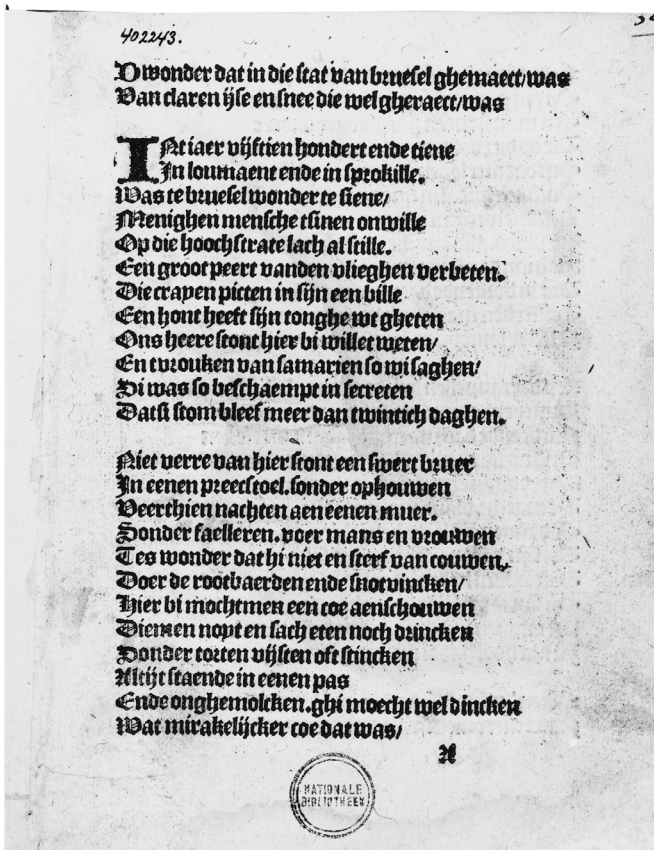 402243.
Dwonder dat in die stat van bruesel ghemaect/was
Van claren ijse en snee die wel gheraect/was
INt iaer vijftien hondert ende tiene
In loumaent ende in sprokille.
Was te bruesel wonder te siene/
Menighen mensche tsinen onwille
Op die hoochstrate lach al stille.
Een groot peert vanden vlieghen verbeten.
Die crapen picten in sijn een bille
Een hont heeft sijn tonghe wt gheten
Ons heere stont hier bi willet weten/
En tvrouken van samarien so wi saghen/
Si was so beschaempt in secreten
Datsi stom bleef meer dan twintich daghen.
Niet verre van hier stont een swert bruer
In eenen preecstoel. sonder ophouwen
Veerthien nachten aen eenen muer.
Sonder faelleren. voer mans en vrouwen
Tes wonder dat hi niet en sterf van couwen.
Doer de rootbaerden ende snotvincken/
Hier bi mochtmen een coe aenschouwen
Diemen noyt en sach eten noch drincken
Sonder torten vijsten oft stincken
Altijt staende in eenen pas
Ende onghemolcken. ghi moecht wel dincken
Wat mirakelijcker coe dat was/
A
NATIONALE
BIBLIOTHEEK